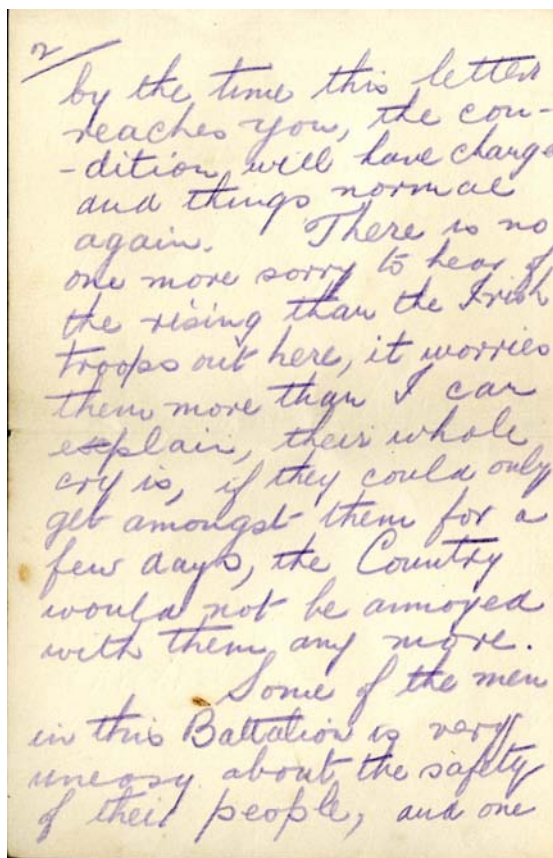 2/
by the time this letter
reaches you, the con-
-dition will have change
and things normal
again. There is no
one more sorry to hear of
the rising than the Irish
troops out here, it worries
them more than I can
explain, their whole
cry is, if they could only
get amongst them for a
few days, the Country
would not be annoyed
with them any more.
Some of the men
in this Battalion is very
uneasy about the safety
of their people, and one